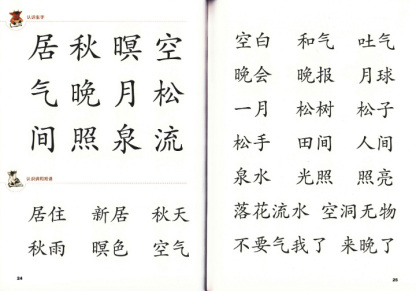 认读汉字
居 秋 暝 空
气 晚 月 松
间 照 泉 流
居住 新居 秋天
秋雨 暝色 空气
24
空白 和气 吐气
晚会 晚报 月球
一月 松树 松子
松手 田间 人间
泉水 光照 照亮
落花流水 空洞无物
不要气我了 来晚了
25